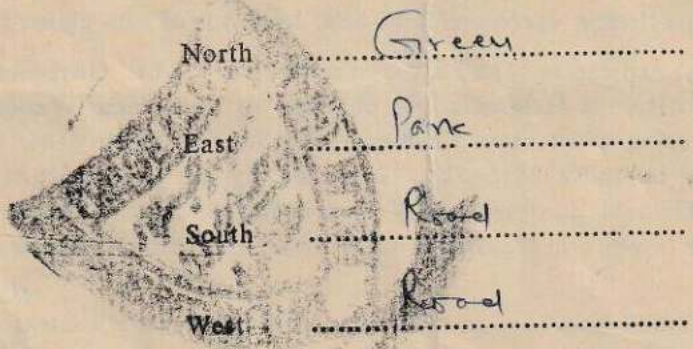 North Green
East Park
South Road
West Road